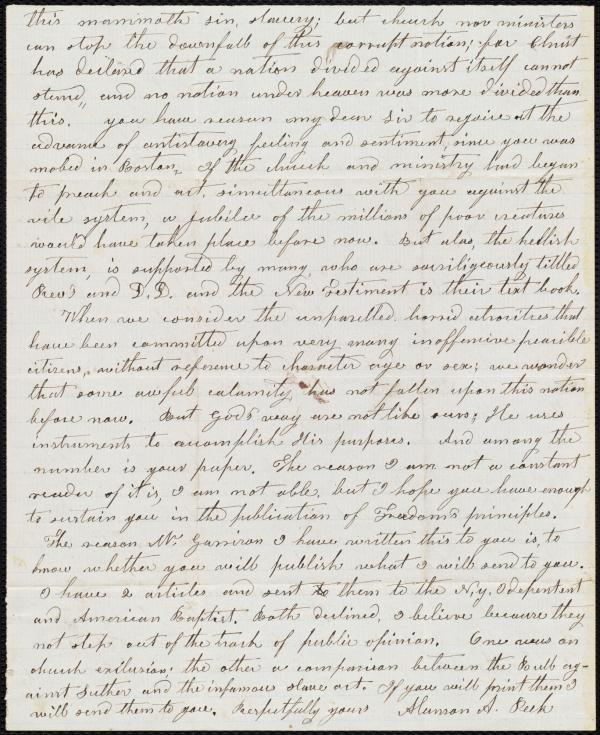 this mammoth sin, slavery; but church nor ministers
can stop the downfall of this corrupt nation; for Christ
has declared that a nation divided against itself cannot
stand," and no nation under heaven was more divided than
this. you have reason my dear sir to rejoice at the
advance of antislavery feeling and sentiment, since you was
mobed in Boston, If the church and ministry had began
to preach and act, simultaneous with you against the
vile system, a jubilee of the millions of poor creatures
would have taken place before now. But alas, the hellish
system, is supported by many who are sacriligeously tittled
Rev's and D.D. and the New Testiment is their text book.
When we consider the unparelled horrid atrocities that
have been committed upon very many inoffensive peacible
citizens, without reference to character age or sex; we wonder
that some awful calamity has not fallen upon this nation
before now. But God's way are not like ours; He uses
instruments to accomplish His purposes. And among the
number is your paper. The reason I am not a constant
reader of it is, I am not able, but I hope you have enough
to sustain you in the publication of Freedom's principles.
The reason Mr. Garrison I have written this to you is, to
know whether you will publish what I will send to you.
I have 2 articles and sent them to the N.y. Independent
and American Baptist. Both declined, I believe because they
not step out of the track of public opinion. One was on
church exclusion; the other a comparison between the Bull ag-
ainst Luther and the infamous slave act. If you will print them I
will send them to you. Respectfully yours Alanson A. Peck